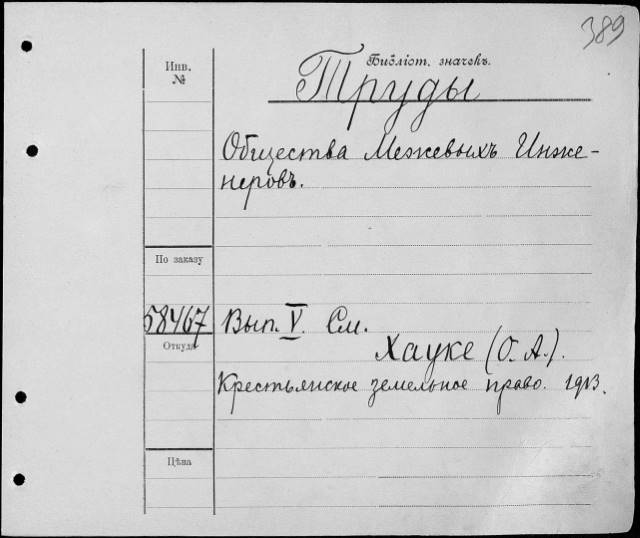 389
Библіот. значекъ.
Инв.
№
Труды
Общества Межевыхъ Инже-
неровъ.
По заказу
58467 Вып. V. См.
Откуда
Хауке (О. А.).
Крестьянское земельное право. 1913.
Цѣна